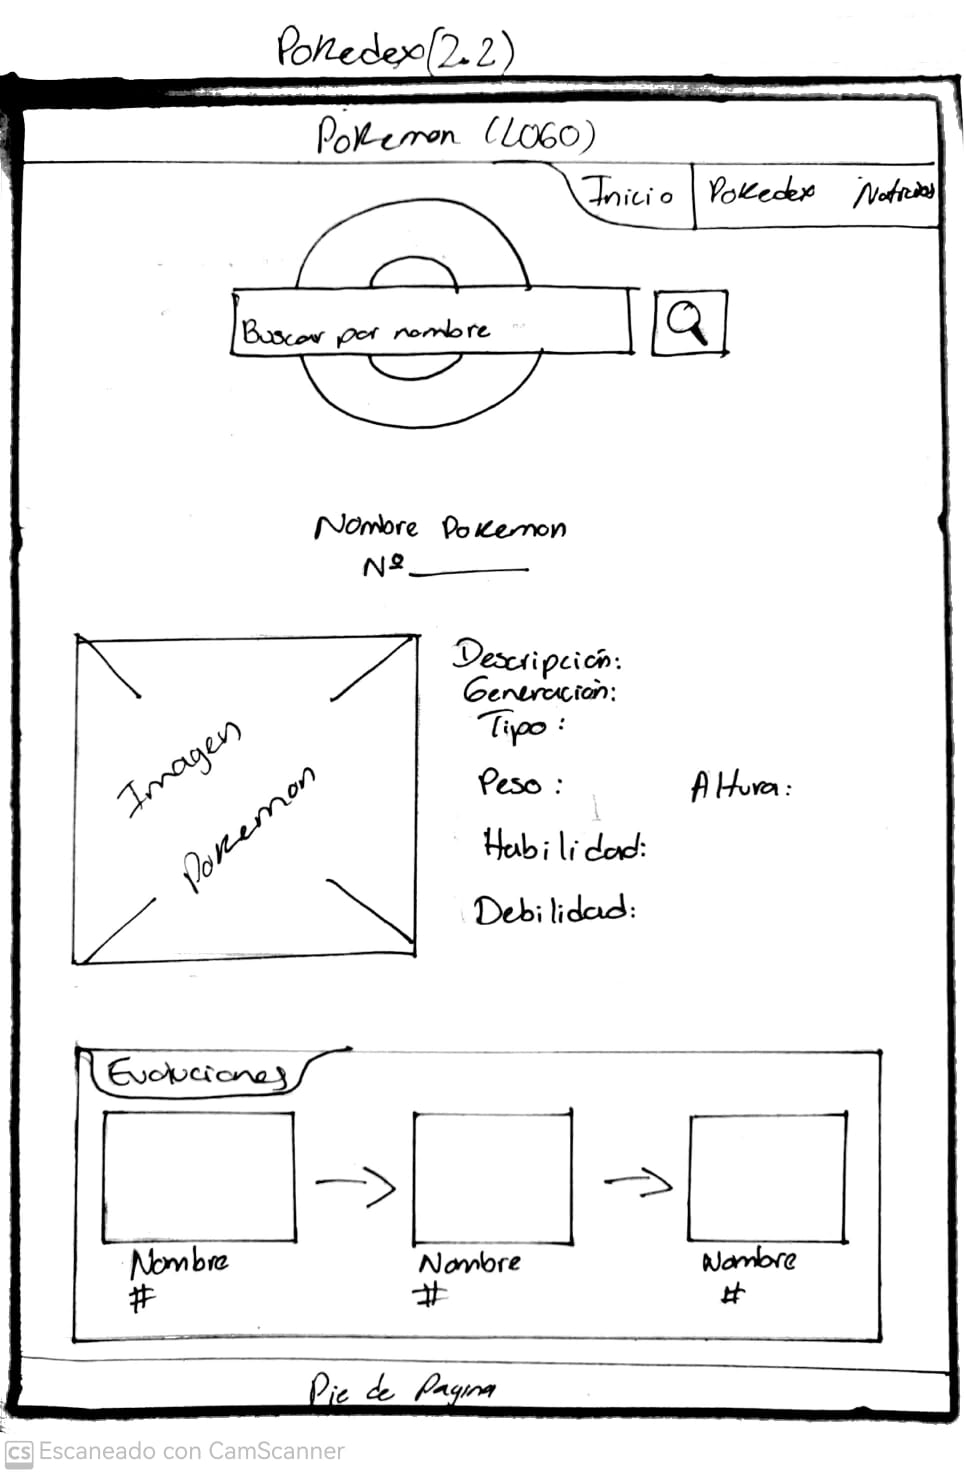 Pokedex (2.2)
Pokemon (LOGO)
Inicio Pokedex Noticias
Buscar por nombre
Nombre Pokemon
Nº
Descripción:
Generación:
Tipo:
Peso: Altura:
Habilidad:
Debilidad:
Imagen
Pokemon
Evoluciones
Nombre Nombre Nombre
# # #
Pie de Pagina
CS Escaneado con CamScanner